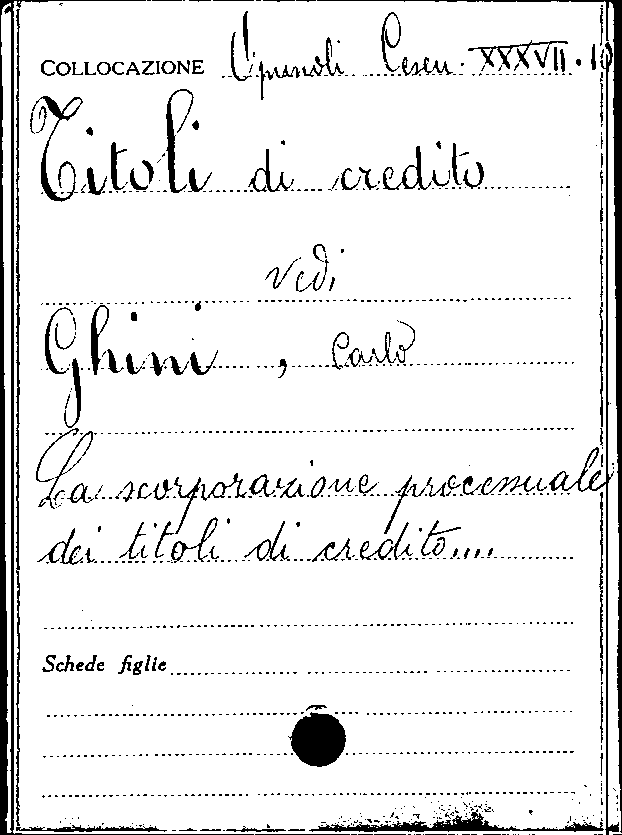 COLLOCAZIONE Opuscoli Cesen. XXXVII. 10
Titoli di credito
vedi
Ghini, Carlo
La scorporazione processuale
dei titoli di credito....
Schede figlie